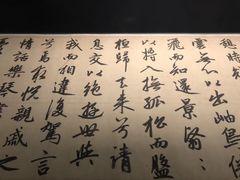 憩時
雲無心以出岫鳥倦
飛而知還景翳〻
以將入撫孤松而盤
桓歸去來兮請
息交以絕遊世與
我而相違復駕言
兮焉求悅親戚之
情話樂琴書